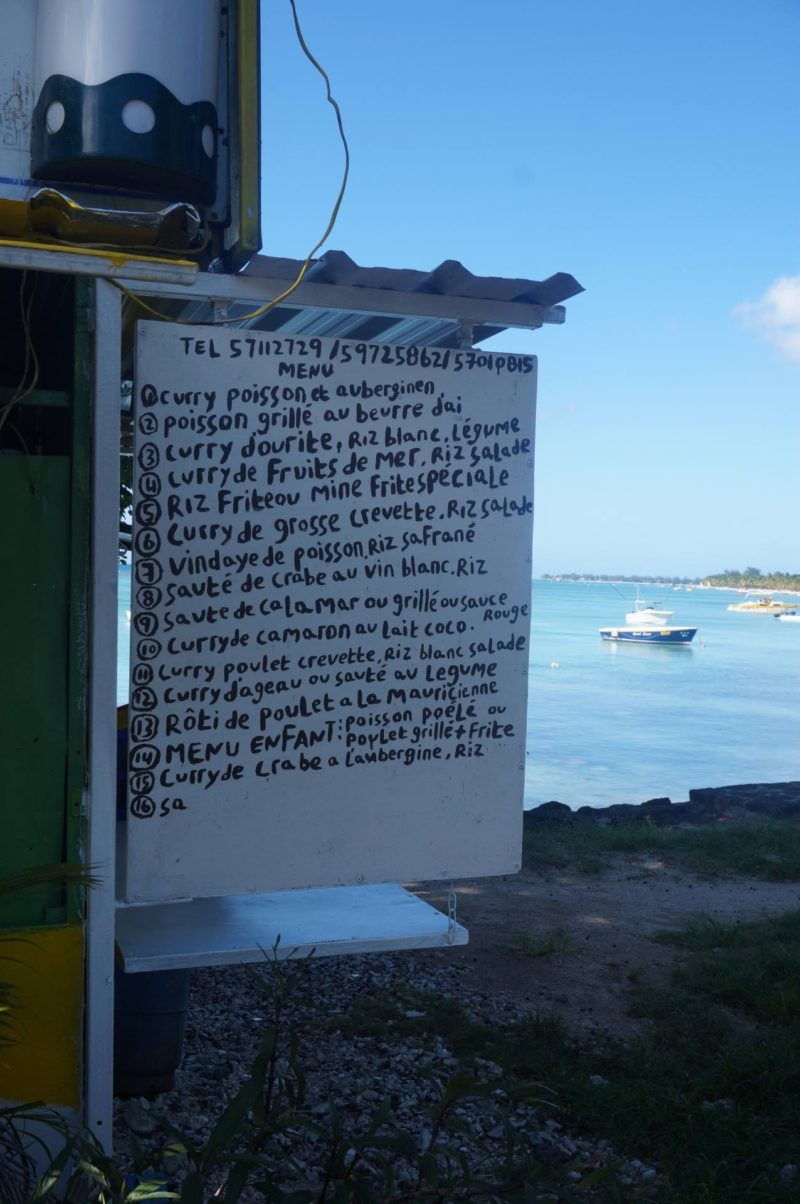 TEL 57112729/59725862/5701PB15
MENU
① curry poisson et auberginen
② poisson grillé au beurre d'ai
③ curry d'ourite, Riz blanc, Légume
④ curry de Fruits de Mer, Riz salade
⑤ RIZ Frite ou mine Frite spéciale
⑥ curry de grosse crevette, Riz salade
⑦ vindaye de poisson, Riz safrané
⑧ sauté de crabe au vin blanc, Riz
⑨ saute de calamar ou grillé ou sauce Rouge
⑩ curry de camaron au lait coco.
⑪ curry poulet crevette, Riz blanc salade
⑫ curry dageau ou sauté au Legume
⑬ Rôti de poulet a la mauricienne
⑭ MENU ENFANT: poisson poêlé ou
poulet grillé + Frite
⑮ curry de crabe a l'aubergine, Riz
⑯ sa